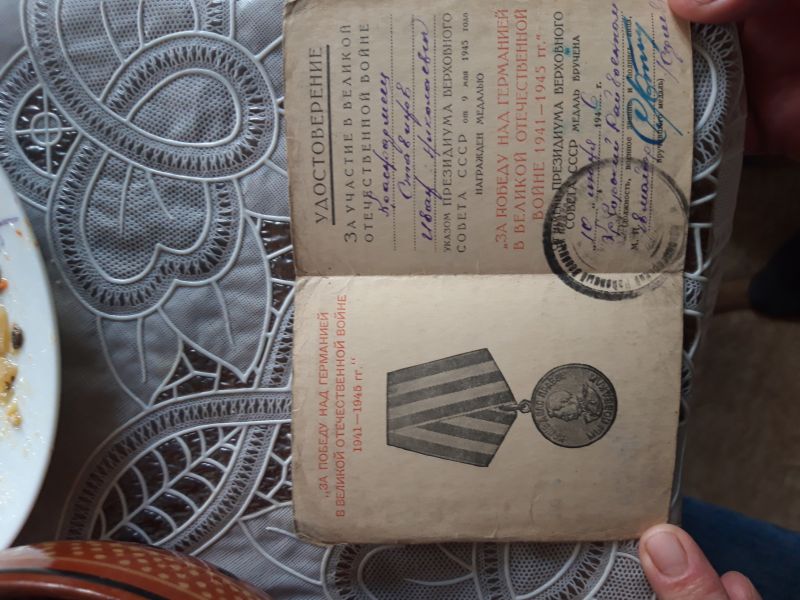 „ЗА ПОБЕДУ НАД ГЕРМАНИЕЙ
В ВЕЛИКОЙ ОТЕЧЕСТВЕННОЙ ВОЙНЕ
1941—1945 гг."
УДОСТОВЕРЕНИЕ
ЗА УЧАСТИЕ В ВЕЛИКОЙ
ОТЕЧЕСТВЕННОЙ ВОЙНЕ
красноармеец
Иван Николаевич
УКАЗОМ ПРЕЗИДИУМА ВЕРХОВНОГО
СОВЕТА СССР от 9 мая 1945 года
НАГРАЖДЕН МЕДАЛЬЮ
„ЗА ПОБЕДУ НАД ГЕРМАНИЕЙ
В ВЕЛИКОЙ ОТЕЧЕСТВЕННОЙ
ВОЙНЕ 1941—1945 гг."
ПРЕЗИДИУМА ВЕРХОВНОГО
СОВЕТА СССР МЕДАЛЬ ВРУЧЕНА
10 1946 г.
Райвоенком
М. П. (Должность, военное звание и
майор
вручившего медаль)